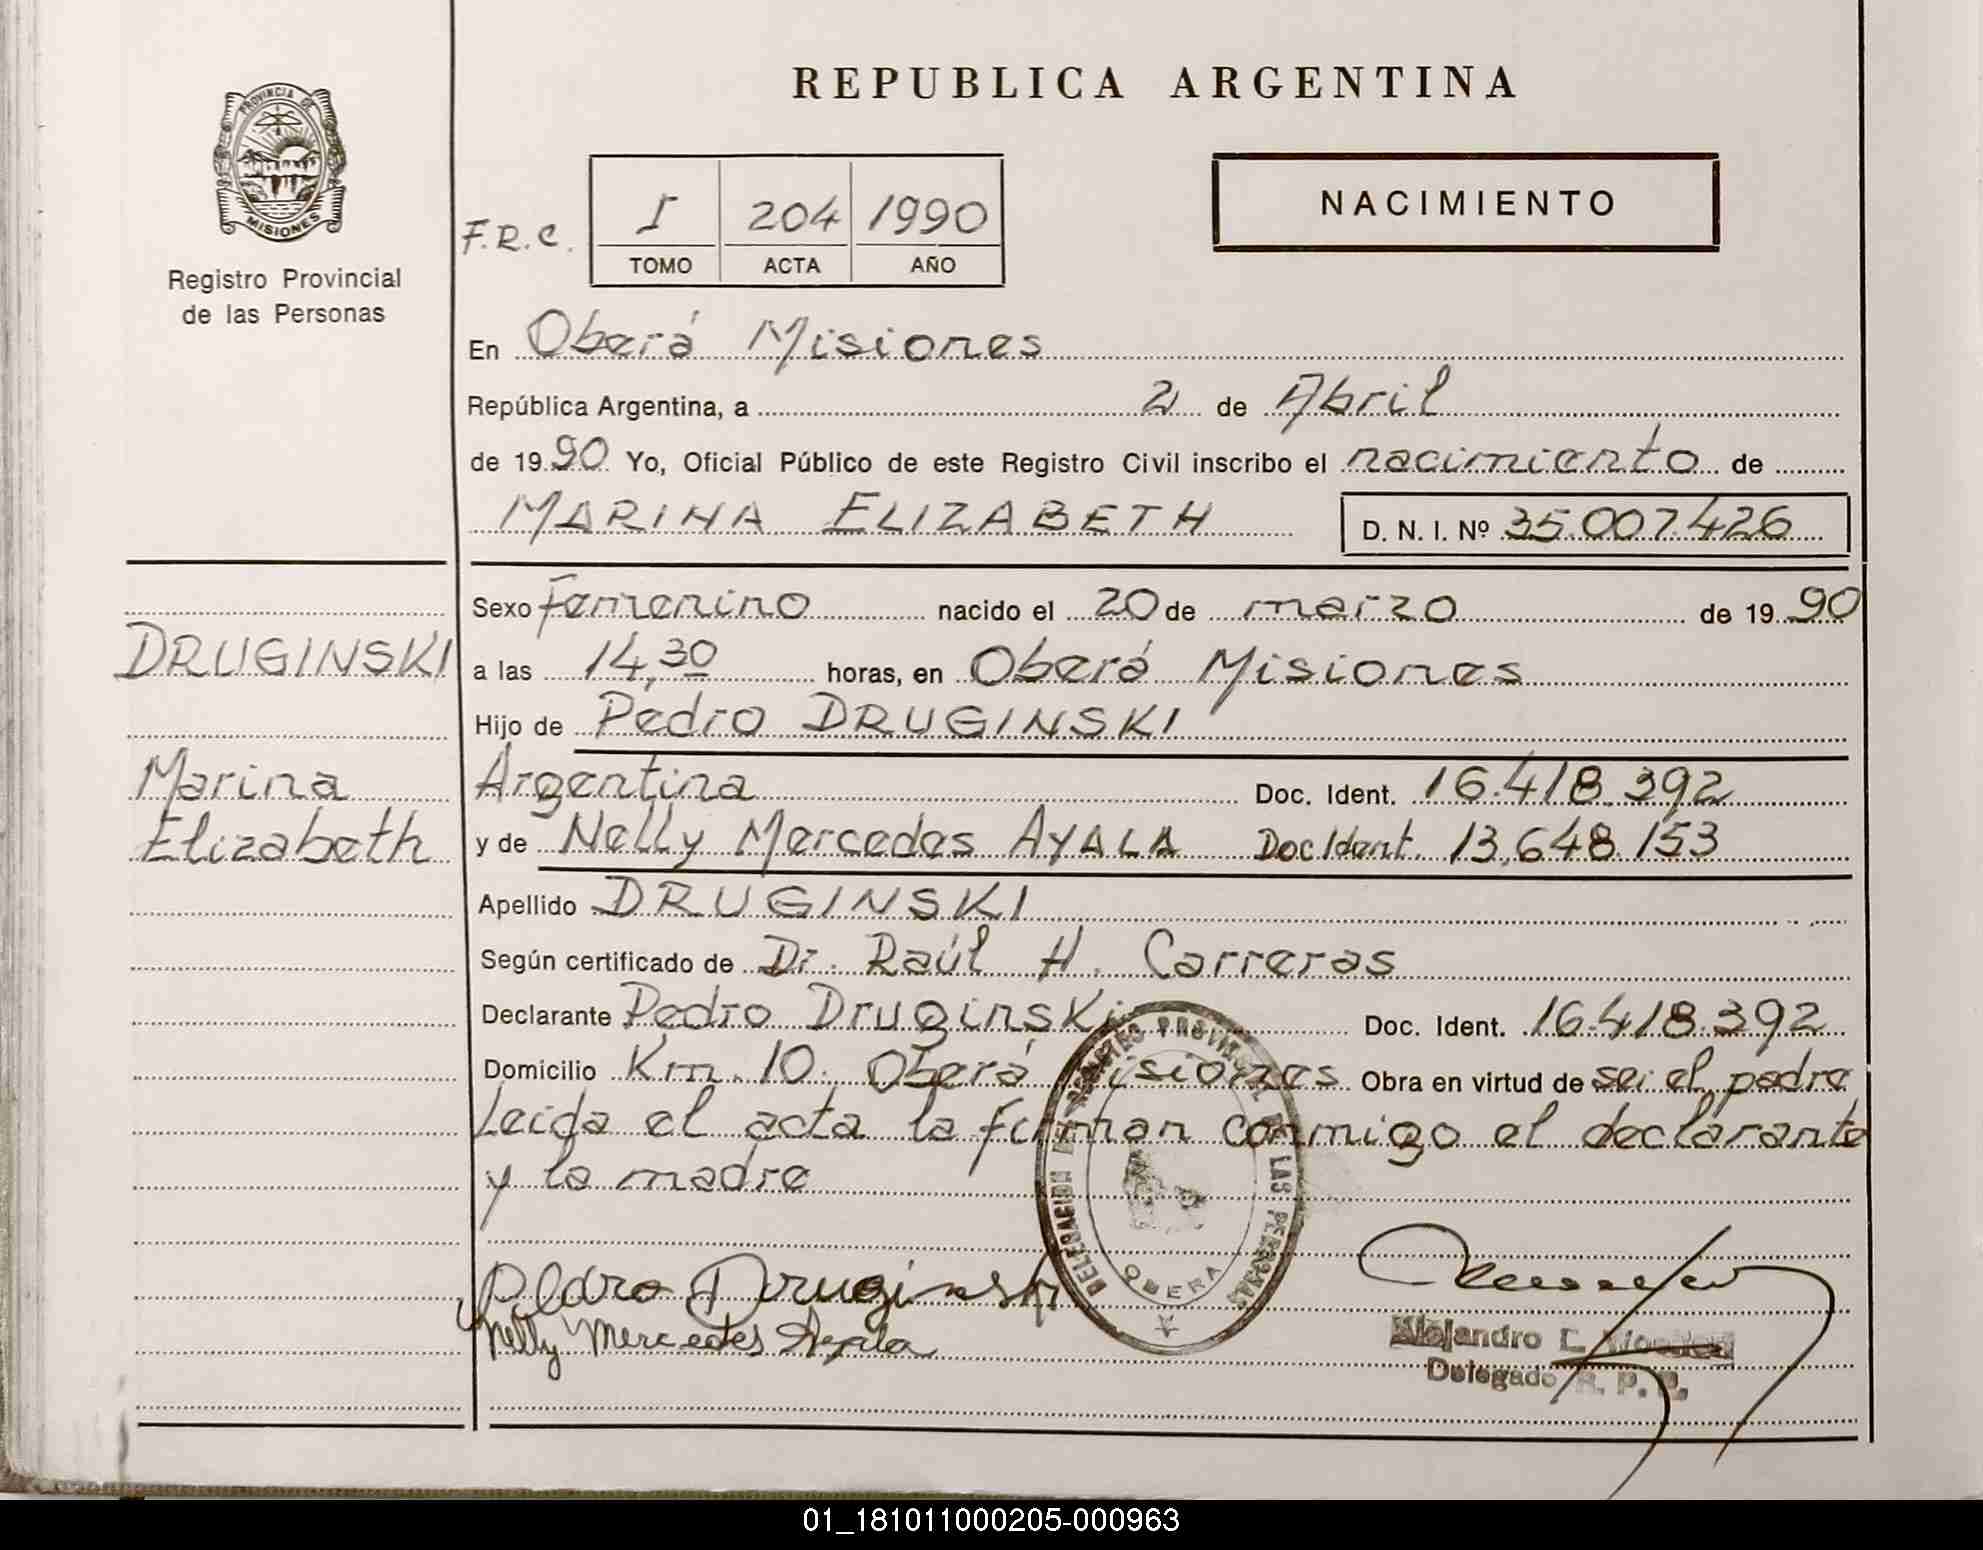 REPUBLICA ARGENTINA
PROVINCIA DE
MISIONES
Registro Provincial
de las Personas
F.R.C.
I 204 1990
TOMO ACTA AÑO
NACIMIENTO
En Oberá Misiones
República Argentina, a 2 de Abril
de 1990 Yo, Oficial Público de este Registro Civil inscribo el nacimiento de
MARINA ELIZABETH D. N. I. Nº 35.007.426
DRUGINSKI
Marina
Elizabeth
Sexo Femenino nacido el 20 de marzo de 1990
a las 14,30 horas, en Oberá Misiones
Hijo de Pedro DRUGINSKI
Argentina Doc. Ident. 16.418.392
y de Nelly Mercedes AYALA Doc Ident. 13.648.153
Apellido DRUGINSKI
Según certificado de Dr. Raúl H. Carreras
Declarante Pedro Druginski Doc. Ident. 16.418.392
Domicilio Km. 10. Oberá Misiones Obra en virtud de ser el padre
Leida el acta la firman conmigo el declarante
y la madre
DELEGACION DE REGISTRO PROVINCIAL DE LAS PERSONAS
OBERA
Pedro Druginski
Nelly Mercedes Ayala
Alejandro L.
Delegado R. P. P.
01_181011000205-000963